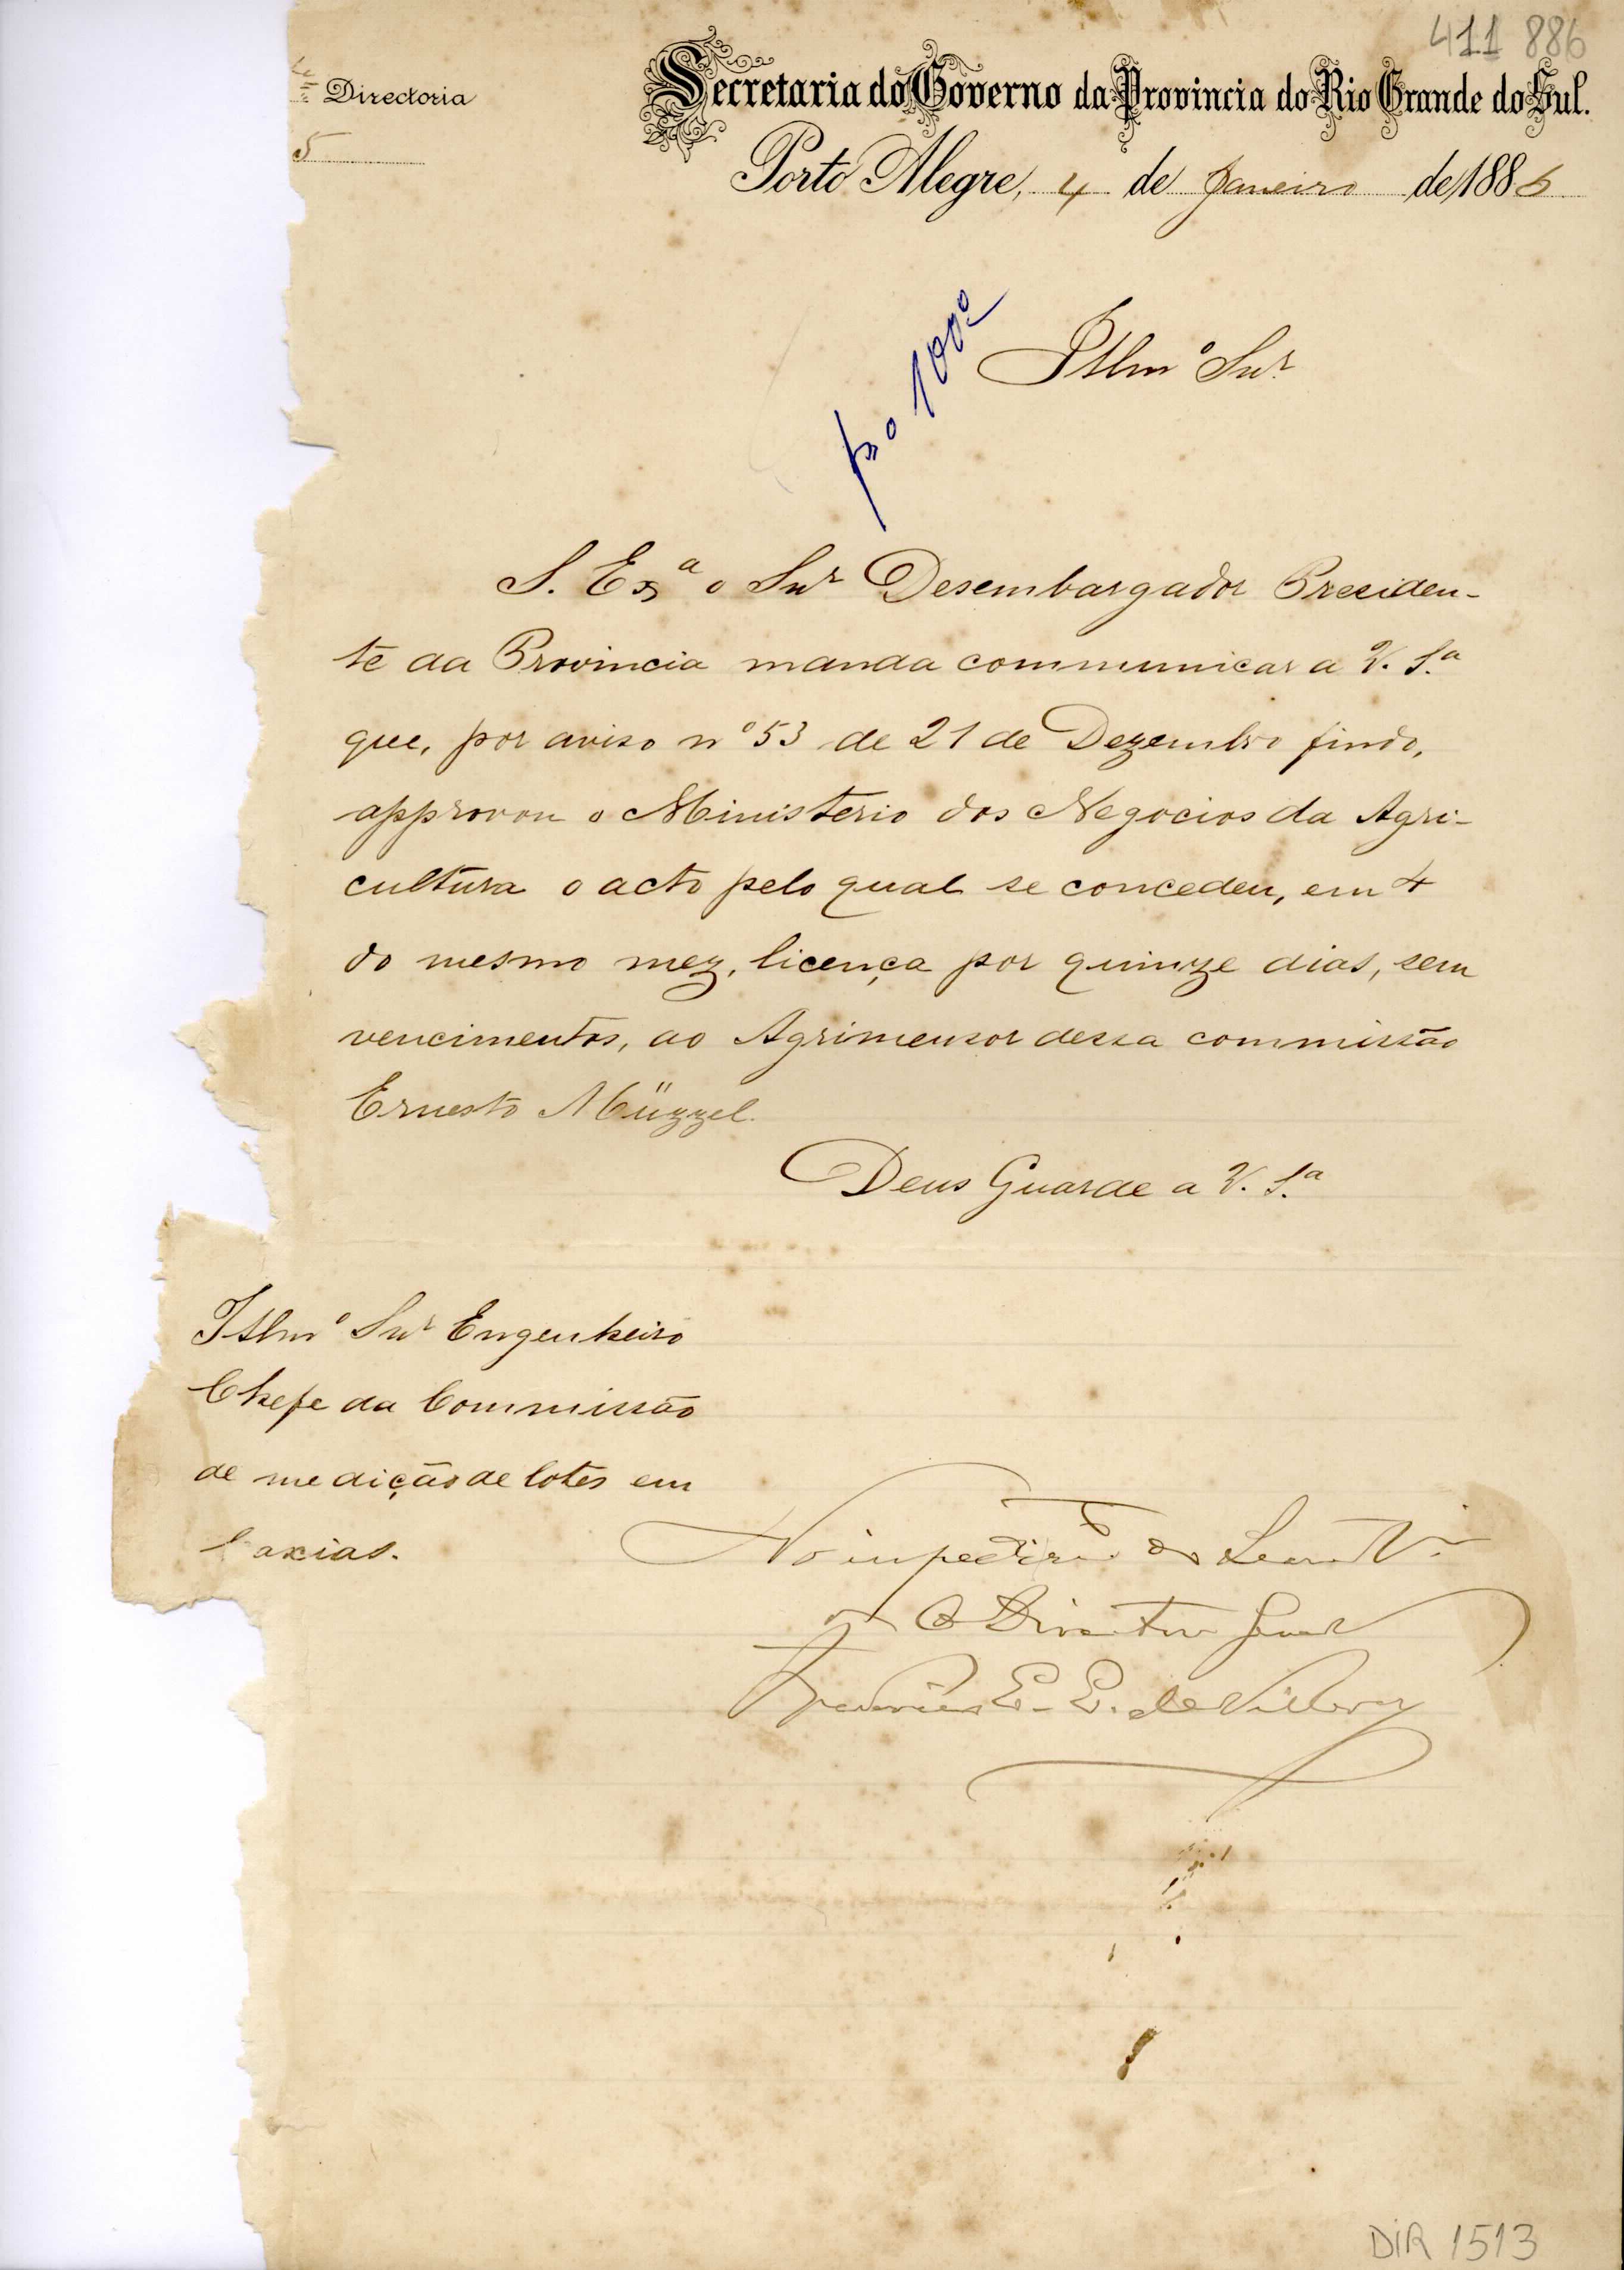 411 886
Directoria
Secretaria do Governo da Provincia do Rio Grande do Sul.
5
Porto Alegre, 4 de Janeiro de 1886
Illmº Snr
S. Exª o Snr Desembargador Presiden-
te da Provincia manda communicar a V. S.ª
que, por aviso nº 53 de 21 de Dezembro findo,
approvou o Ministerio dos Negocios da Agri-
cultura o acto pelo qual se concedeu, em 4
do mesmo mez, licença por quinze dias, sem
vencimentos, ao Agrimensor dessa commissão
Ernesto Müzzel.
Deus Guarde a V. S.ª
Illmº Snr Engenheiro
Chefe da Commissão
de medição de lotes em
Caxias.
No impedimº do
O Director Geral
E. E. de
DIR 1513